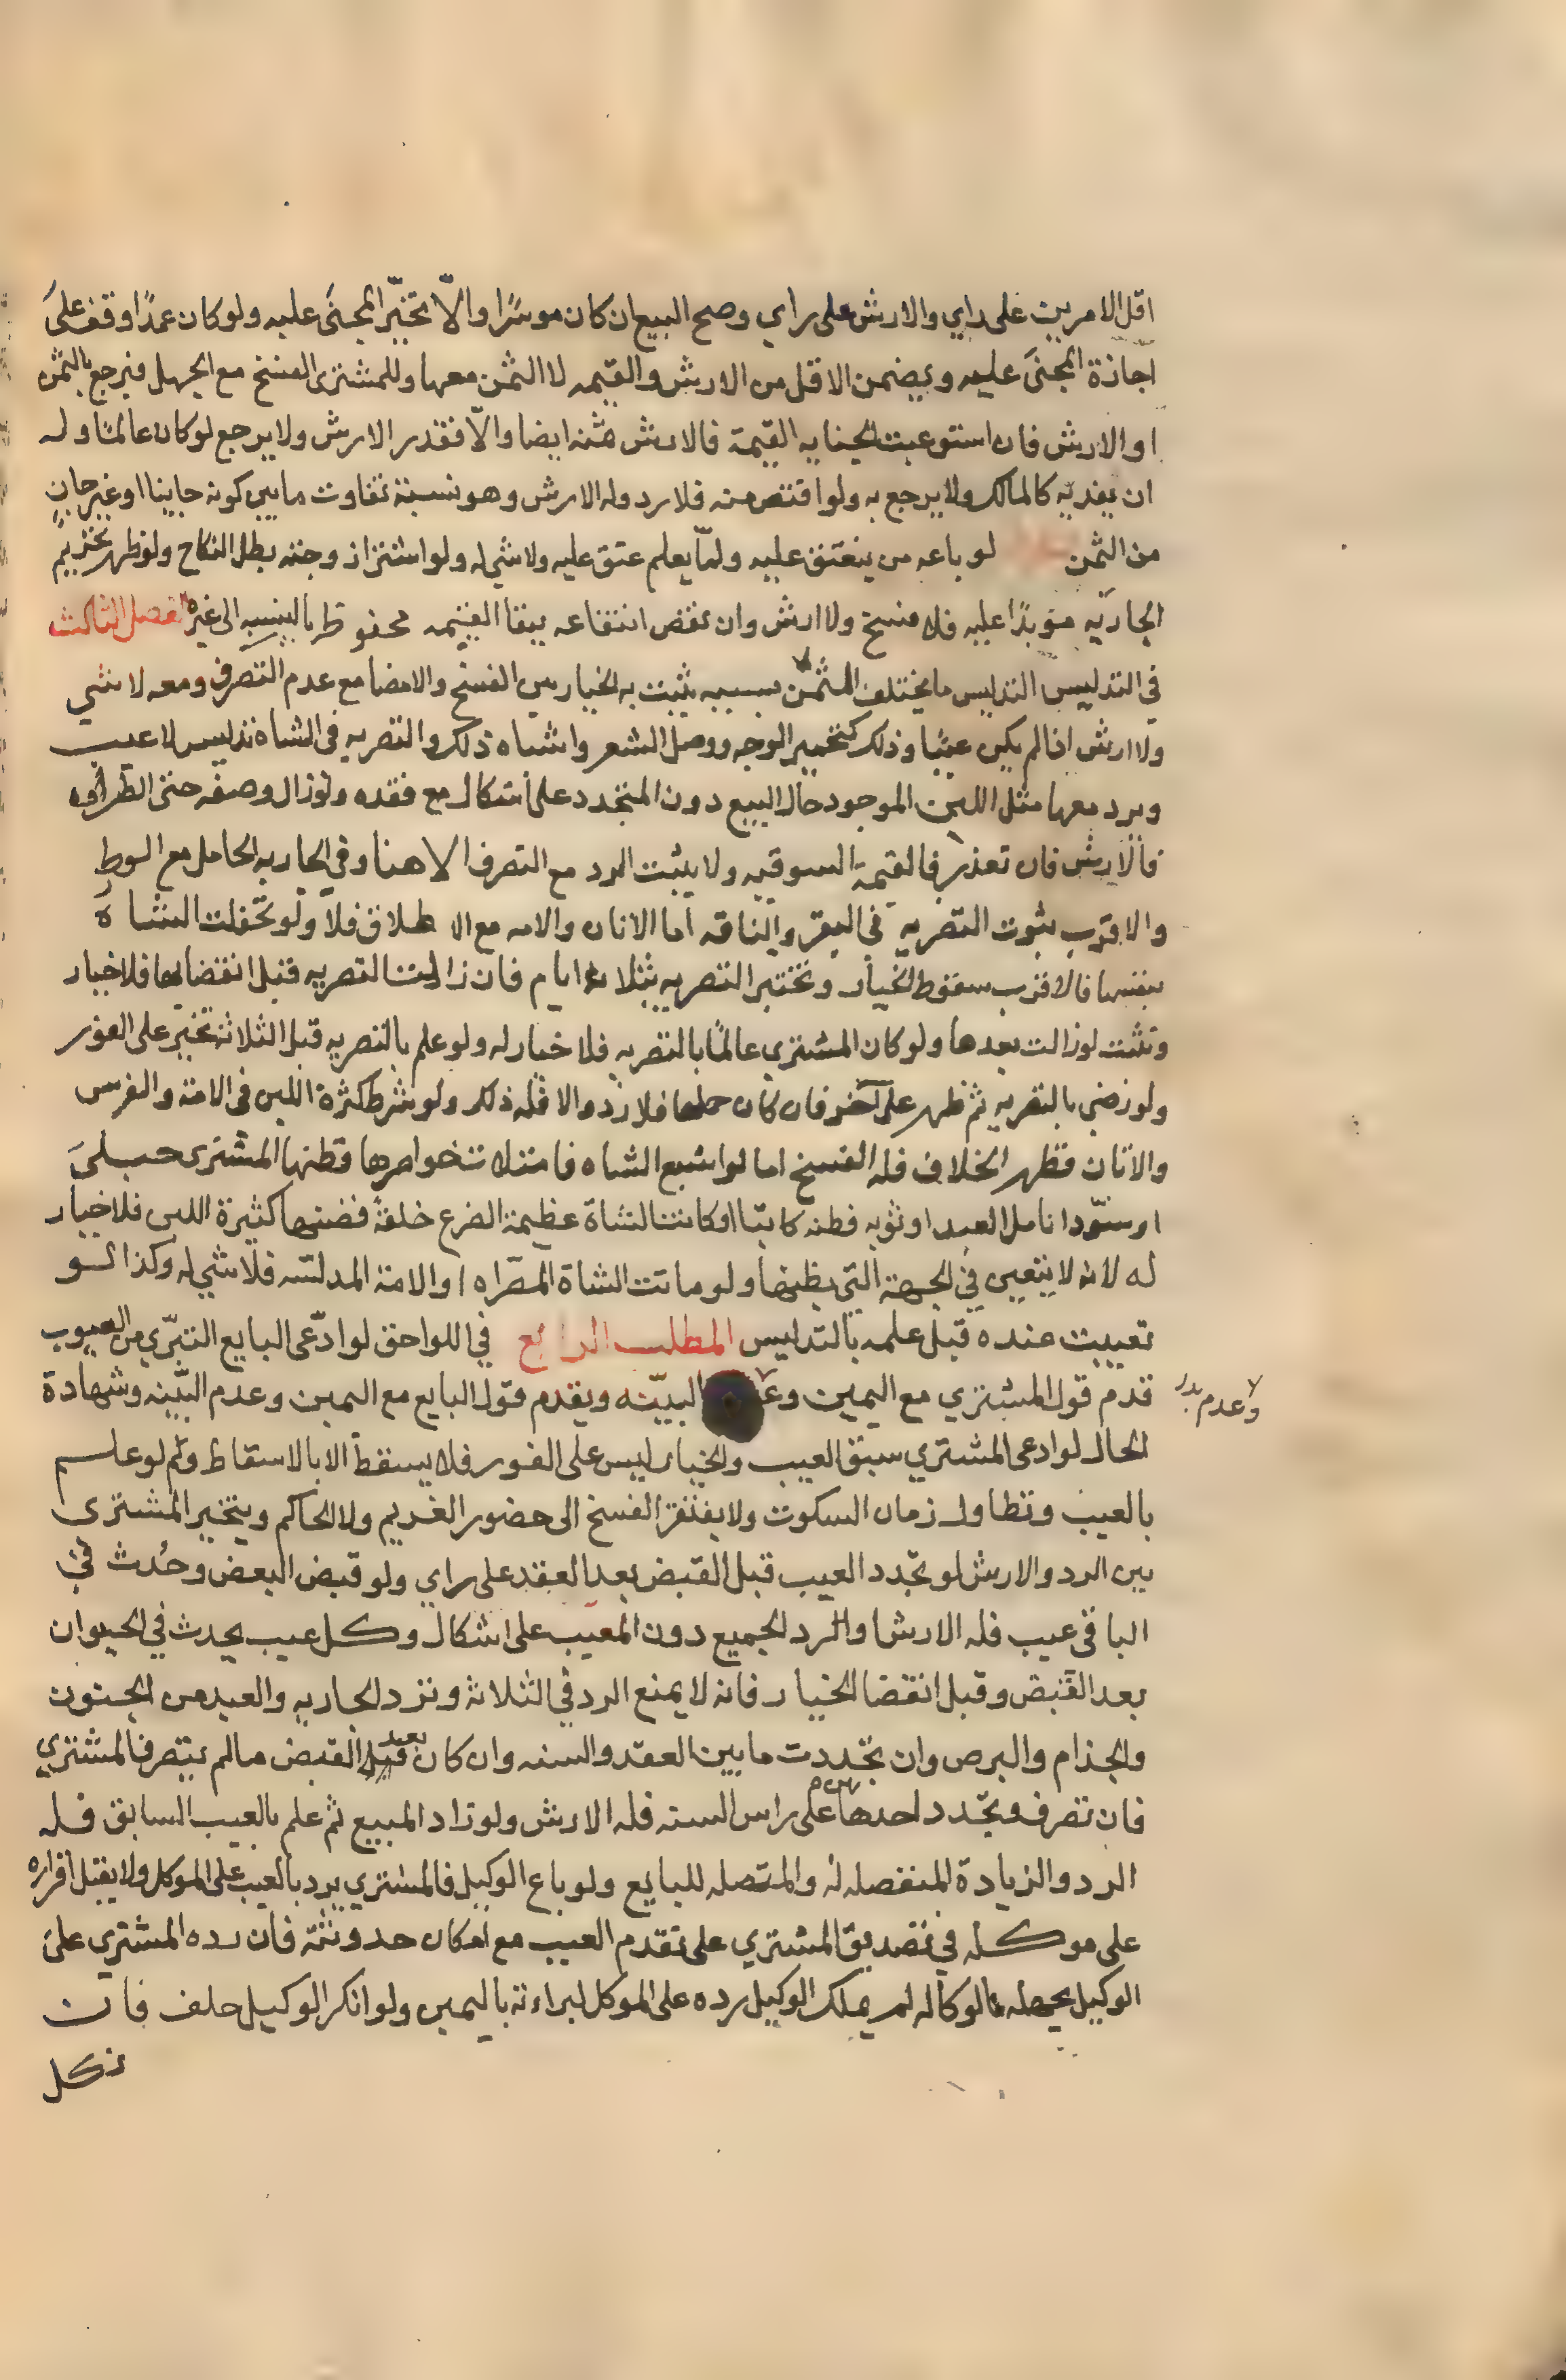 اقل الامرين على راي والارش على راي وصح البيع ان كان موسرًا والّا تخيّر المجنى عليه ولو كان عمدًا وقف على
اجازة المجنى عليه ويضمن الاقل من الارش والقيمه لا الثمن معها وللمشترى الفسخ مع الجهل فيرجع بالثمن
او الارش فان استوعبت الجنايه القيمة فالارش ثمنه ايضا والّا فقدر الارش ولا يرجع لو كان عالمًا وله
ان يفديه كالمالك ولا يرجع به ولو اقتص منه فلا رد وله الارش وهو نسبة تفاوت ما بين كونه جانيا او غير جانٍ
من الثمن لو باعه من ينعتق عليه ولمّا يعلم عتق عليه ولا شي له ولو اشترا زوجته بطل النكاح ولو ظهر تحريم
الجاريه مؤبدًا عليه فلا فسخ ولا ارش وان نقض انتفاعه ببقا القيمه محفوظه بالنسبه الى غيره الفصل الثالث
في التدليس التدليس ما يختلف الثمن بسببه يثبت به الخيار بين الفسخ والامضا مع عدم التصرف ومعه لا شي
ولا ارش اذا لم يكن عيبًا وذلك كتحمير الوجه ووصل الشعر واشباه ذلك والتصريه في الشاة تدليس لا عيب
ويرد معها مثل اللبن الموجود حال البيع دون المتجدد على اشكال مع فقده ولو زال وصفه حتى الطراوه
فالارش فان تعذر فالقيمة السوقيه ولا يثبت الرد مع التصرف الا هنا وفي الجاريه الحامل مع الوطي
والاقرب ثبوت التصريه في البقر والناقه اما الاتان والامه مع الاطلاق فلا ولو تحّفلت الشاة
بنفسها فالاقرب سقوط الخيار وتختبر التصريه بثلاثة ايام فان زالت التصريه قبل انقضائها فلا خيار
وتثبت لو زالت بعدها ولو كان المشتري عالمًا بالتصريه فلا خيار له ولو علم بالتصريه قبل الثلاثة تخير على الفور
ولو رضي بالتصريه ثم ظهر على آخر فان كان حلبها فلا رد والا فله ذلك ولو شرط كثرة اللبن في الامة والفرس
والاتان فظهر الخلاف فله الفسخ اما لو اشبع الشاه فامتلات خواصرها فظنها المشترى حبلى
او سوّد انامل العبد او ثوبه فظنه كاتبا او كانت الشاة عظيمة الضرع خلقةً فظنها كثيرة اللبن فلا خيار
له لانه لا يتعين في الجهة التي يظنها ولو ماتت الشاة المصّراه او الامة المدلسه فلا شي له وكذا لو
تعيبت عنده قبل علمه بالتدليس المطلب الرابع في اللواحق لو ادّعى البايع التبّري من العيوب
قدم قول المشتري مع اليمين وعدم البيّنه ويقدم قول البايع مع اليمين وعدم البيّنه وشهادة
وعدم
الحال لو ادعى المشتري سبق العيب والخيار ليس على الفور فلا يسقط الا بالاسقاط ولو علم
بالعيب وتطاول زمان السكوت ولا يفتقر الفسخ الى حضور الغريم ولا الحاكم ويتخير المشترى
بين الرد والارش لو تجّدد العيب قبل القبض بعد العقد على راي ولو قبض البعض وحُدث في
الباقي عيب فله الارش او الرد الجميع دون المعيب على اشكال وكل عيب يحدث في الحيوان
بعد القبض وقبل انقضا الخيار فانه لا يمنع الرد في الثلاثة وترد الجاريه والعبد من الجنون
والجذام والبرص وان تجّددت ما بين العقد والسنه وان كان بعد القبض ما لم يتصرف المشتري
فان تصرف وتجّدد احدها على راس السنه فله الارش ولو زاد المبيع ثم علم بالعيب السابق فله
الرد والزيادة المنفصله له والمتصله للبايع ولو باع الوكيل فالمشتري يرد بالعيب على الموكل ولا يقبل اقراره
على موكله في تصديق المشتري على تقدم العيب مع امكان حدوثه فان رده المشتري على
الوكيل بجهله بالوكاله لم يملك الوكيل رده على الموكل لبراءته باليمين ولو انكر الوكيل حلف فان
نكل